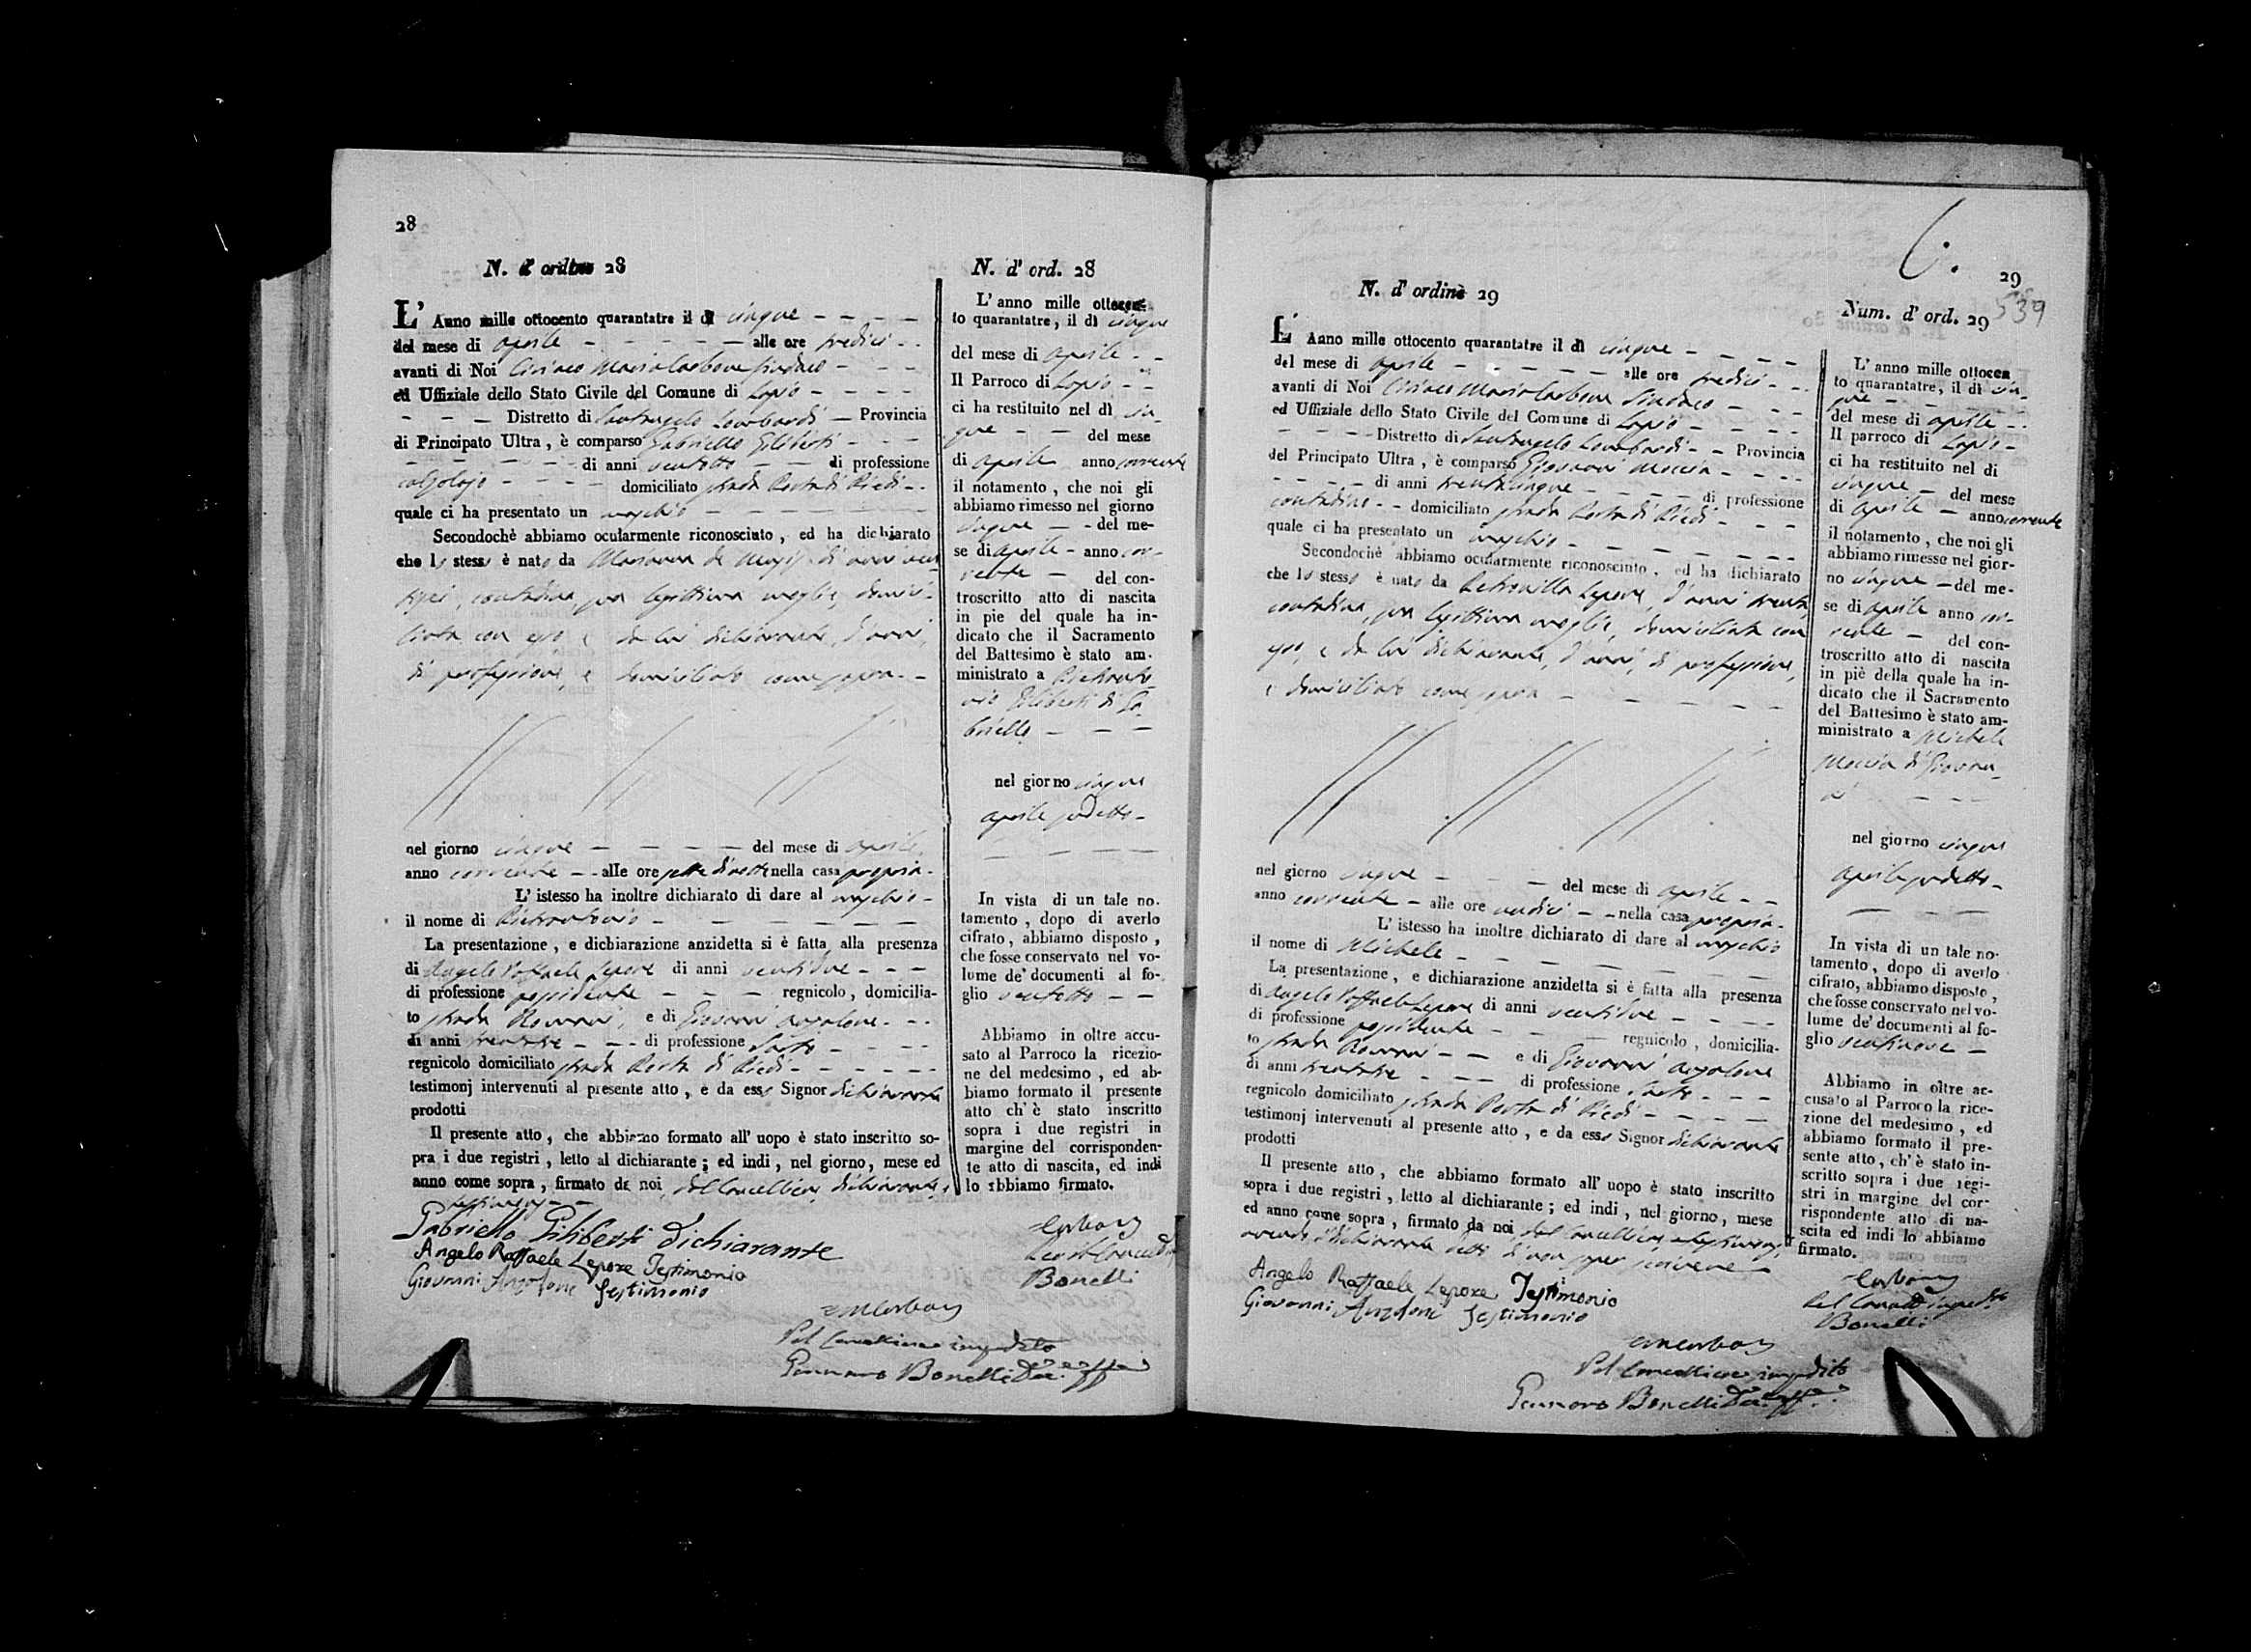 28
N. d' ordine 28
L' Anno mille ottocento quarantatre il dì cinque
del mese di aprile alle ore tredici
avanti di Noi Ciriaco Maria Carbone Sindaco
ed Uffiziale dello Stato Civile del Comune di Lapio
Distretto di Santangelo Lombardi Provincia
di Principato Ultra, è comparso Gabriello Giliberti
di anni ventotto di professione
calzolajo domiciliato strada Porta di Piedi
quale ci ha presentato un maschio
Secondochè abbiamo ocularmente riconosciuto, ed ha dichiarato
che lo stesso è nato da Marianna de di anni ven
tisei, contadina, sua legittima moglie, domici-
liata con esso, e da lui dichiarante, d'anni,
di professione, e domiciliato come sopra.
nel giorno cinque del mese di aprile
anno corrente alle ore sette di notte nella casa propria.
L' istesso ha inoltre dichiarato di dare al maschio
il nome di Pietrantonio
La presentazione, e dichiarazione anzidetta si è fatta alla presenza
di Angelo Raffaele Lepore di anni ventidue
di professione possidente regnicolo, domicilia-
to strada Romani, e di Giovanni Anzalone
di anni trentatre di professione Sarto
regnicolo domiciliato strada Porta di Piedi
testimonj intervenuti al presente atto, e da esso Signor dichiarante
prodotti
Il presente atto, che abbiamo formato all' uopo è stato inscritto so-
pra i due registri, letto al dichiarante; ed indi, nel giorno, mese ed
anno come sopra, firmato da noi, dal Cancelliere, dichiarante, e
testimonj
Gabriello Giliberti dichiarante
Angelo Raffaele Lepore Testimonio
Giovanni Anzalone Testimonio
CMCarbone
Pel Cancelliere impedito
Gennaro Bonelli
N. d' ord. 28
L' anno mille ottocen-
to quarantatre, il dì cinque
del mese di aprile
Il Parroco di Lapio
ci ha restituito nel dì cin-
que del mese
di aprile anno corrente
il notamento, che noi gli
abbiamo rimesso nel giorno
cinque del me-
se di aprile anno cor-
rente del con-
troscritto atto di nascita
in piè del quale ha in-
dicato che il Sacramento
del Battesimo è stato am-
ministrato a Pietranto-
nio Giliberti di Ga-
briello
nel giorno cinque
aprile sudetto
In vista di un tale no-
tamento, dopo di averlo
cifrato, abbiamo disposto,
che fosse conservato nel vo-
lume de' documenti al fo-
glio ventotto
Abbiamo in oltre accu-
sato al Parroco la ricezio-
ne del medesimo, ed ab-
biamo formato il presente
atto ch' è stato inscritto
sopra i due registri in
margine del corrisponden-
te atto di nascita, ed indi
lo abbiamo firmato.
Carbone
Bonelli
29
539
N. d' ordine 29
L' Anno mille ottocento quarantatre il dì cinque
del mese di aprile alle ore tredici
avanti di Noi Ciriaco Maria Carbone Sindaco
ed Uffiziale dello Stato Civile del Comune di Lapio
Distretto di Santangelo Lombardi Provincia
del Principato Ultra, è comparso Giovanni Moccia
di anni trentacinque di professione
contadino domiciliato strada Porta di Piedi
quale ci ha presentato un maschio
Secondochè abbiamo ocularmente riconosciuto, ed ha dichiarato
che lo stesso è nato da Petronilla Lepore, d'anni trenta,
contadina, sua legittima moglie, domiciliata con
esso, e da lui dichiarante, d'anni, di professione,
e domiciliato come sopra
nel giorno cinque del mese di aprile
anno corrente alle ore undici nella casa propria.
L' istesso ha inoltre dichiarato di dare al maschio
il nome di Michele
La presentazione, e dichiarazione anzidetta si è fatta alla presenza
di Angelo Raffaele Lepore di anni ventidue
di professione possidente regnicolo, domicilia-
to strada Romani e di Giovanni Anzalone
di anni trentatre di professione Sarto
regnicolo domiciliato strada Porta di Piedi
testimonj intervenuti al presente atto, e da esso Signor dichiarante
prodotti
Il presente atto, che abbiamo formato all' uopo è stato inscritto
sopra i due registri, letto al dichiarante; ed indi, nel giorno, mese
ed anno come sopra, firmato da noi dal Cancelliere, e testimonj,
avendo il dichiarante detto di non saper scrivere
Angelo Raffaele Lepore Testimonio
Giovanni Anzalone Testimonio
CMCarbone
Pel Cancelliere impedito
Gennaro Bonelli
Num. d' ord. 29
L' anno mille ottocen
to quarantatre, il dì cin-
que
del mese di aprile
Il parroco di Lapio
ci ha restituito nel dì
cinque del mese
di aprile anno corrente
il notamento, che noi gli
abbiamo rimesso nel gior-
no cinque del me-
se di aprile anno cor-
rente del con-
troscritto atto di nascita
in piè della quale ha in-
dicato che il Sacramento
del Battesimo è stato am-
ministrato a Michele
Moccia di Giovan-
ni
nel giorno cinque
aprile sudetto
In vista di un tale no-
tamento, dopo di averlo
cifrato, abbiamo disposto,
che fosse conservato nel vo-
lume de' documenti al fo-
glio ventinove
Abbiamo in oltre ac-
cusato al Parroco la rice-
zione del medesimo, ed
abbiamo formato il pre-
sente atto, ch' è stato in-
scritto sopra i due regi-
stri in margine del cor-
rispondente atto di na-
scita ed indi lo abbiamo
firmato.
Carbone
Pel Cancell impedito
Bonelli